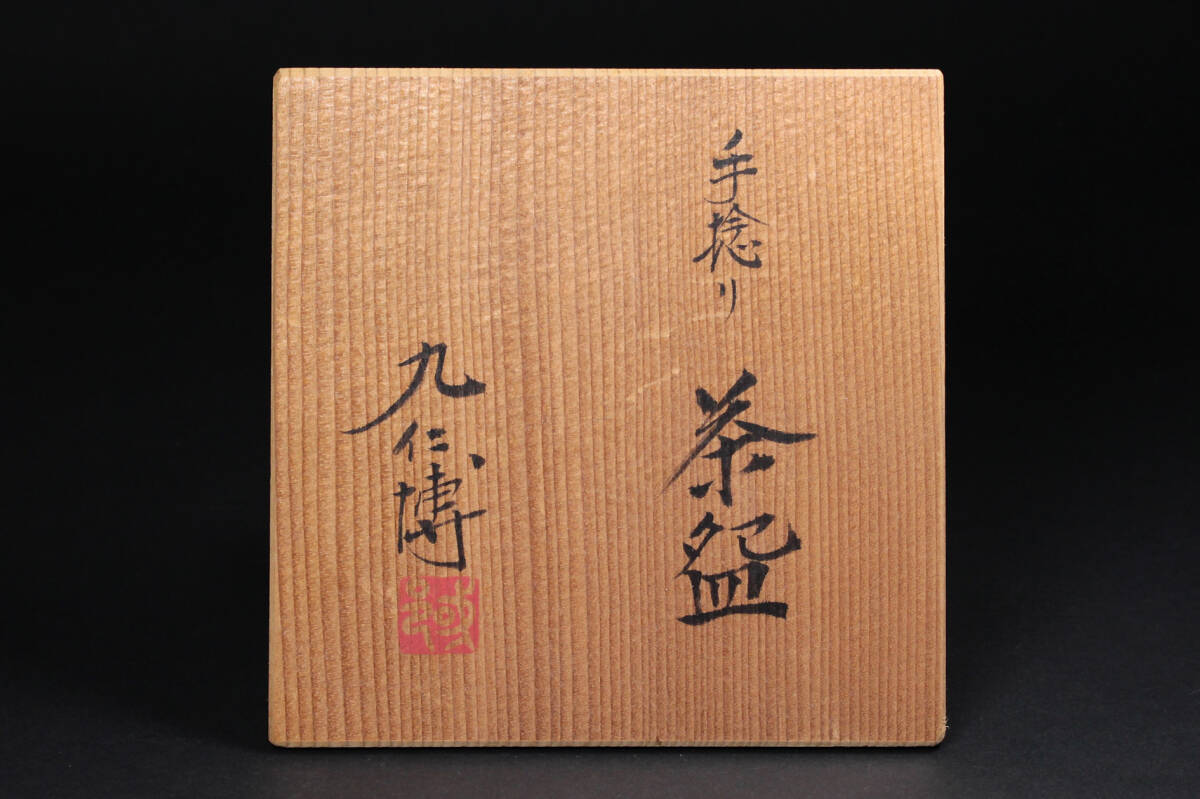 手捻り
茶盌
九仁博